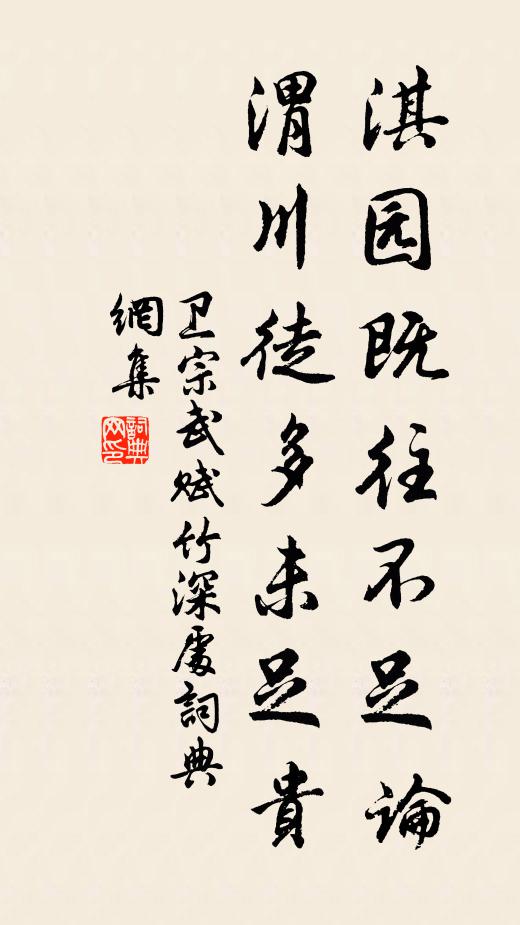 淇园既往不足論
渭川徒多未足貴
卫宗武赋竹深處詞典
網集
詞典
网印